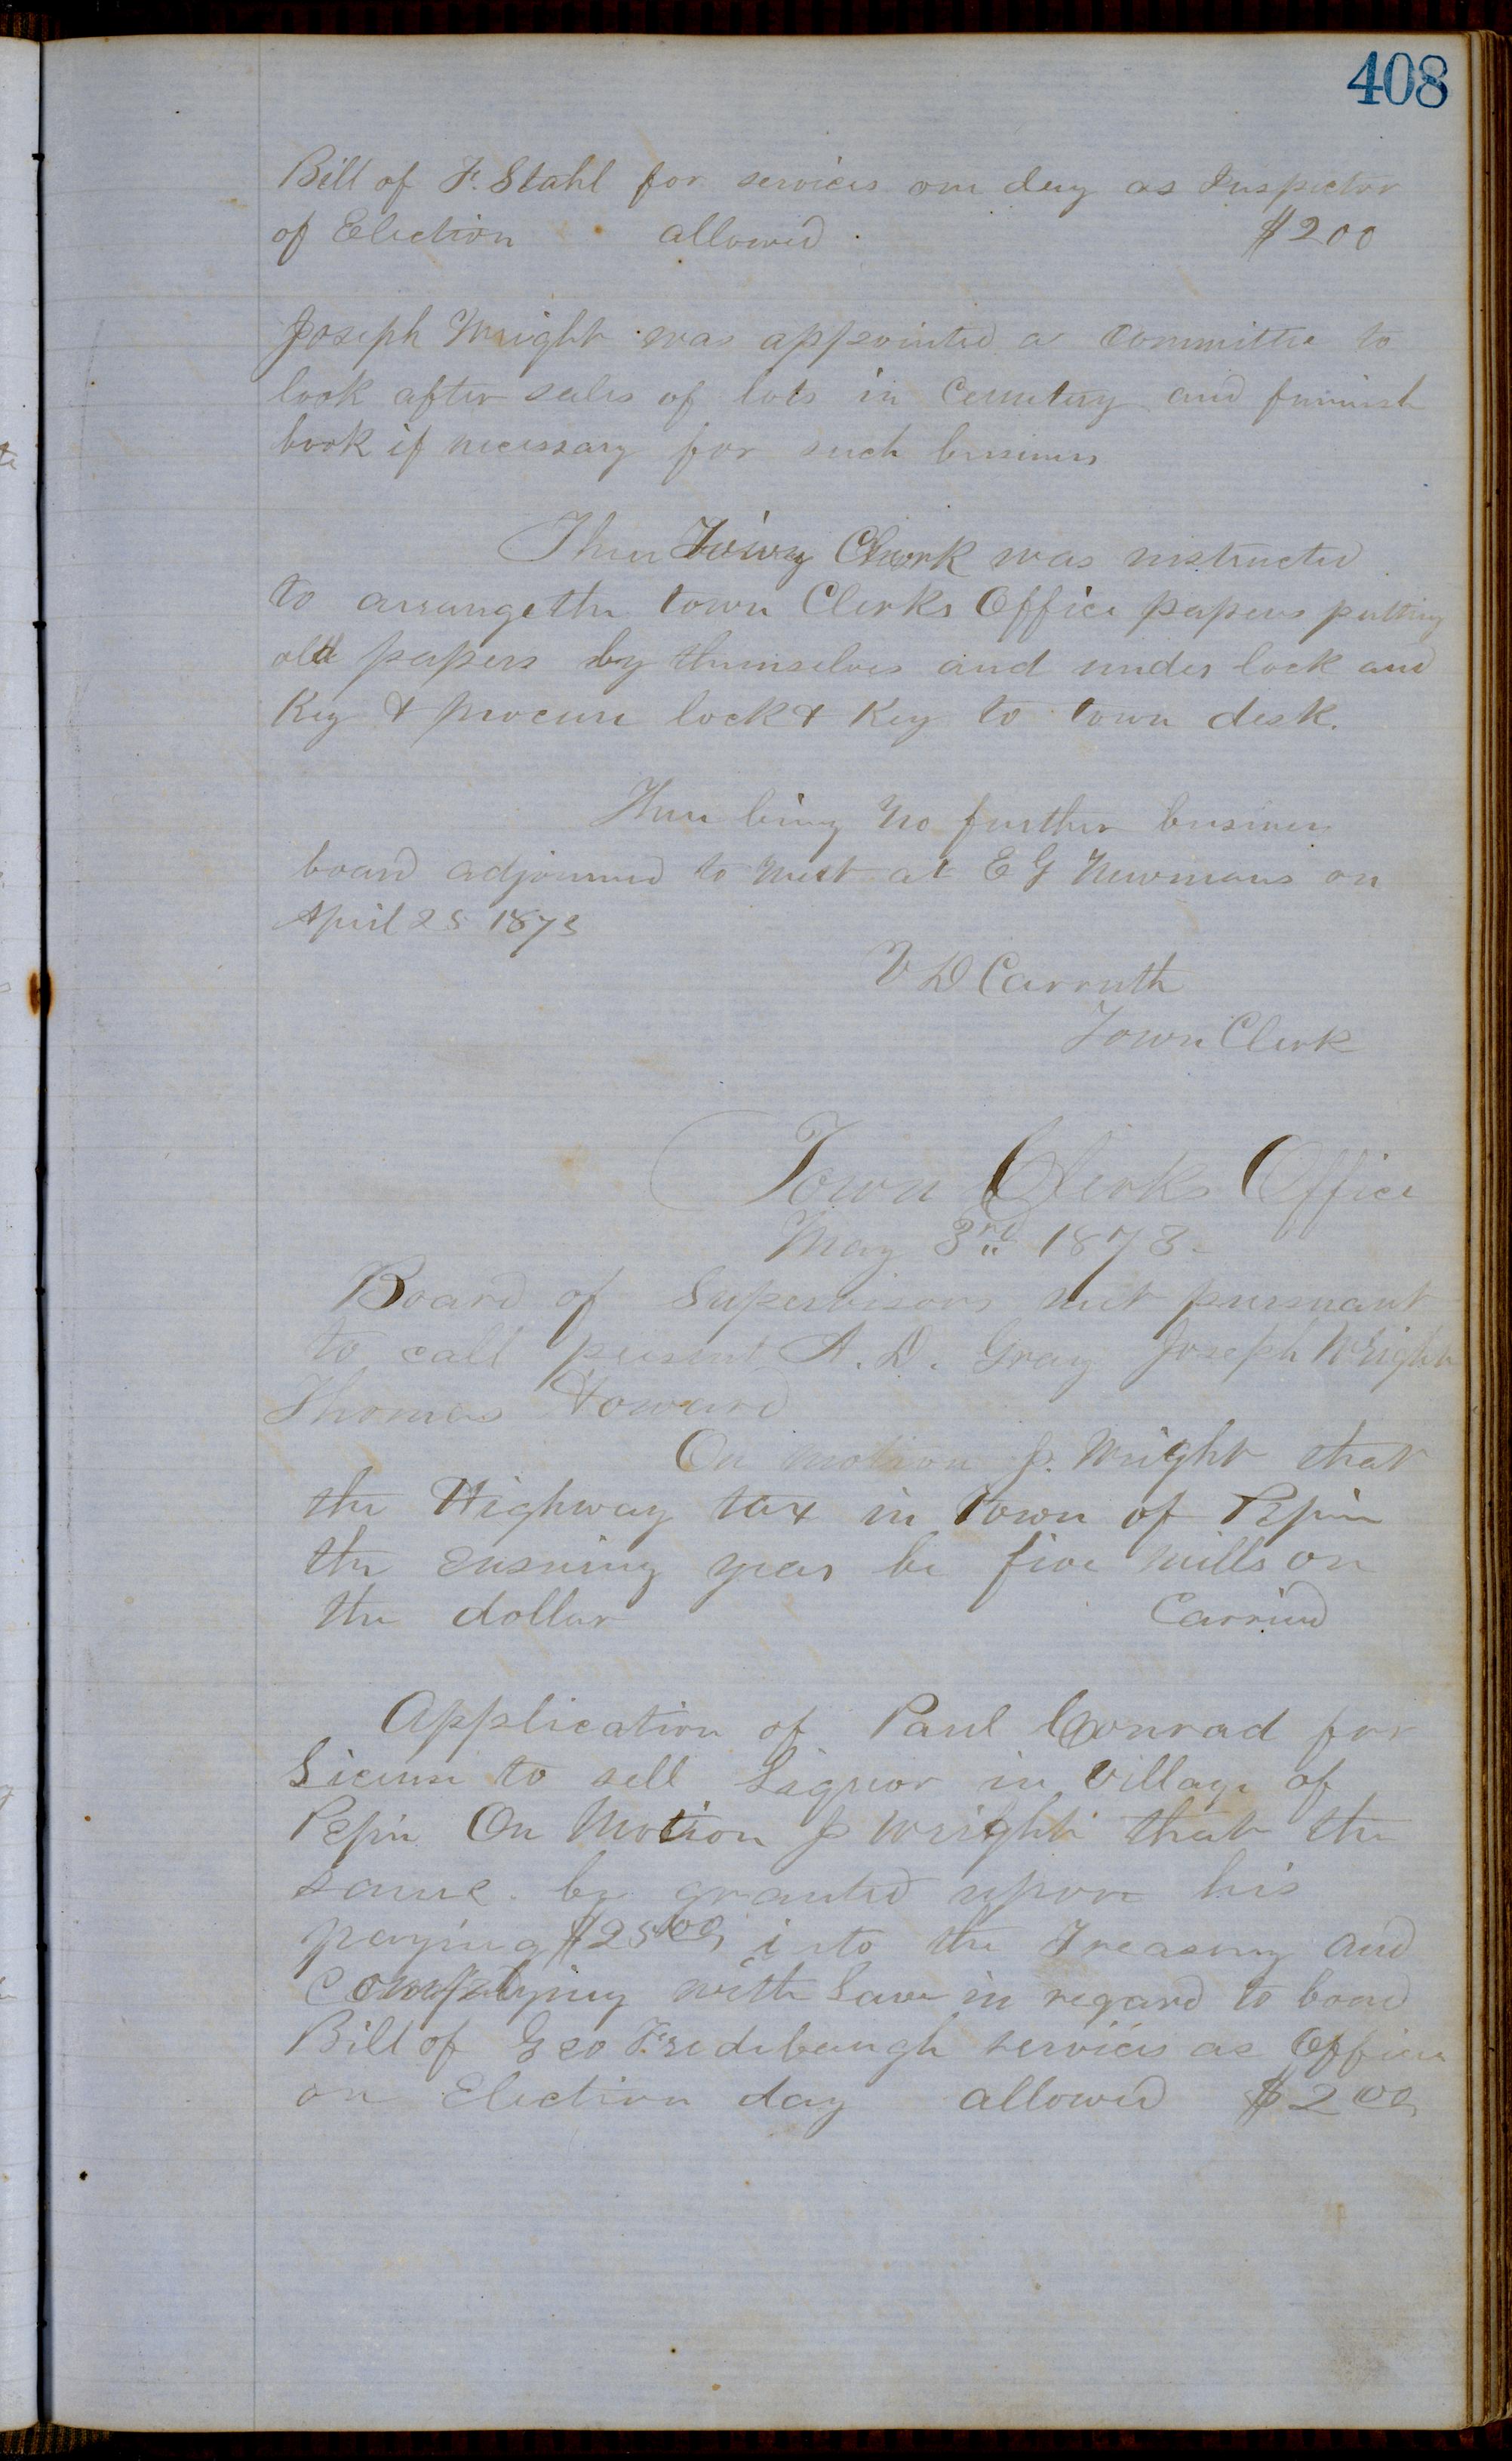 408
Bill of F. Stahl for services one day as Inspector
of Election allowed $200
Joseph Wright was appointed a committee to
look after sales of lots in Cemetery and furnish
book if necessary for such business
Then Town Clerk was instructed
to arrange the town Clerks Office papers putting
old papers by themselves and under lock and
Key & procure lock & Key to town desk.
There being no further business
board adjourned to meet at E G Newmans on
April 25 1873
V D Carruth
Town Clerk
Town Clerks Office
May 3rd 1873.
Board of Supervisors met pursuant
to call present A. D. Gray Joseph Wright
Thomas Howard
On motion J. Wright that
the Highway tax in town of Pepin
the ensuing year be five mills on
the dollar Carried
Application of Paul Conrad for
License to sell Liquor in village of
Pepin On Motion J Wright that the
same be granted upon his
paying $25.00 into the Treasury and
complying with Law in regard to bond
Bill of Geo Fredebaugh services as Officer
on Election day allowed $2.00